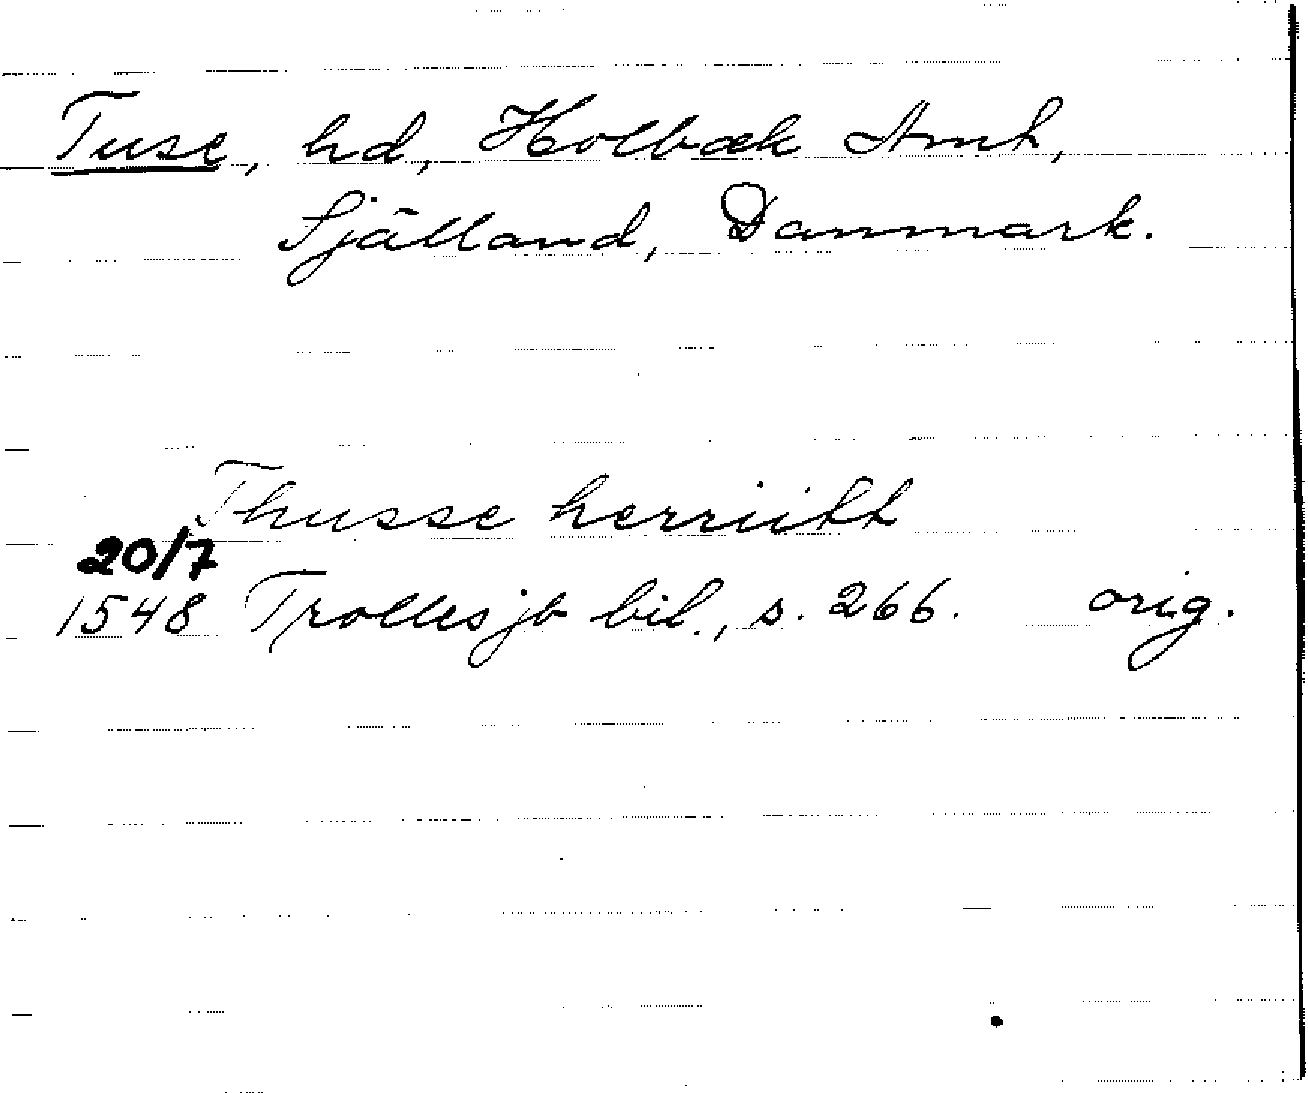 Tuse, hd, Holbæk Amt,
Själland, Danmark.
Thusse herriitt
20/7
1548 Trollesjb bil., s. 266. orig.